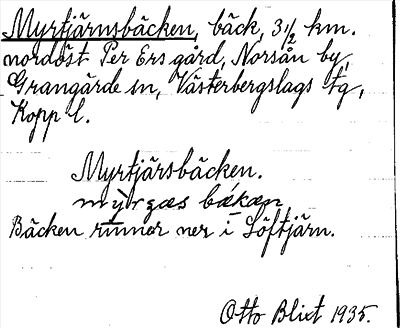 Myrtjärnsbäcken, bäck, 3½ km.
nordöst Per Ers gård, Norsån by,
Grangärde sn, Västerbergslags tg,
Kopp l.
Myrtjärsbäcken.
Bäcken rinner ner i Löftjärn.
Otto Blixt 1935.